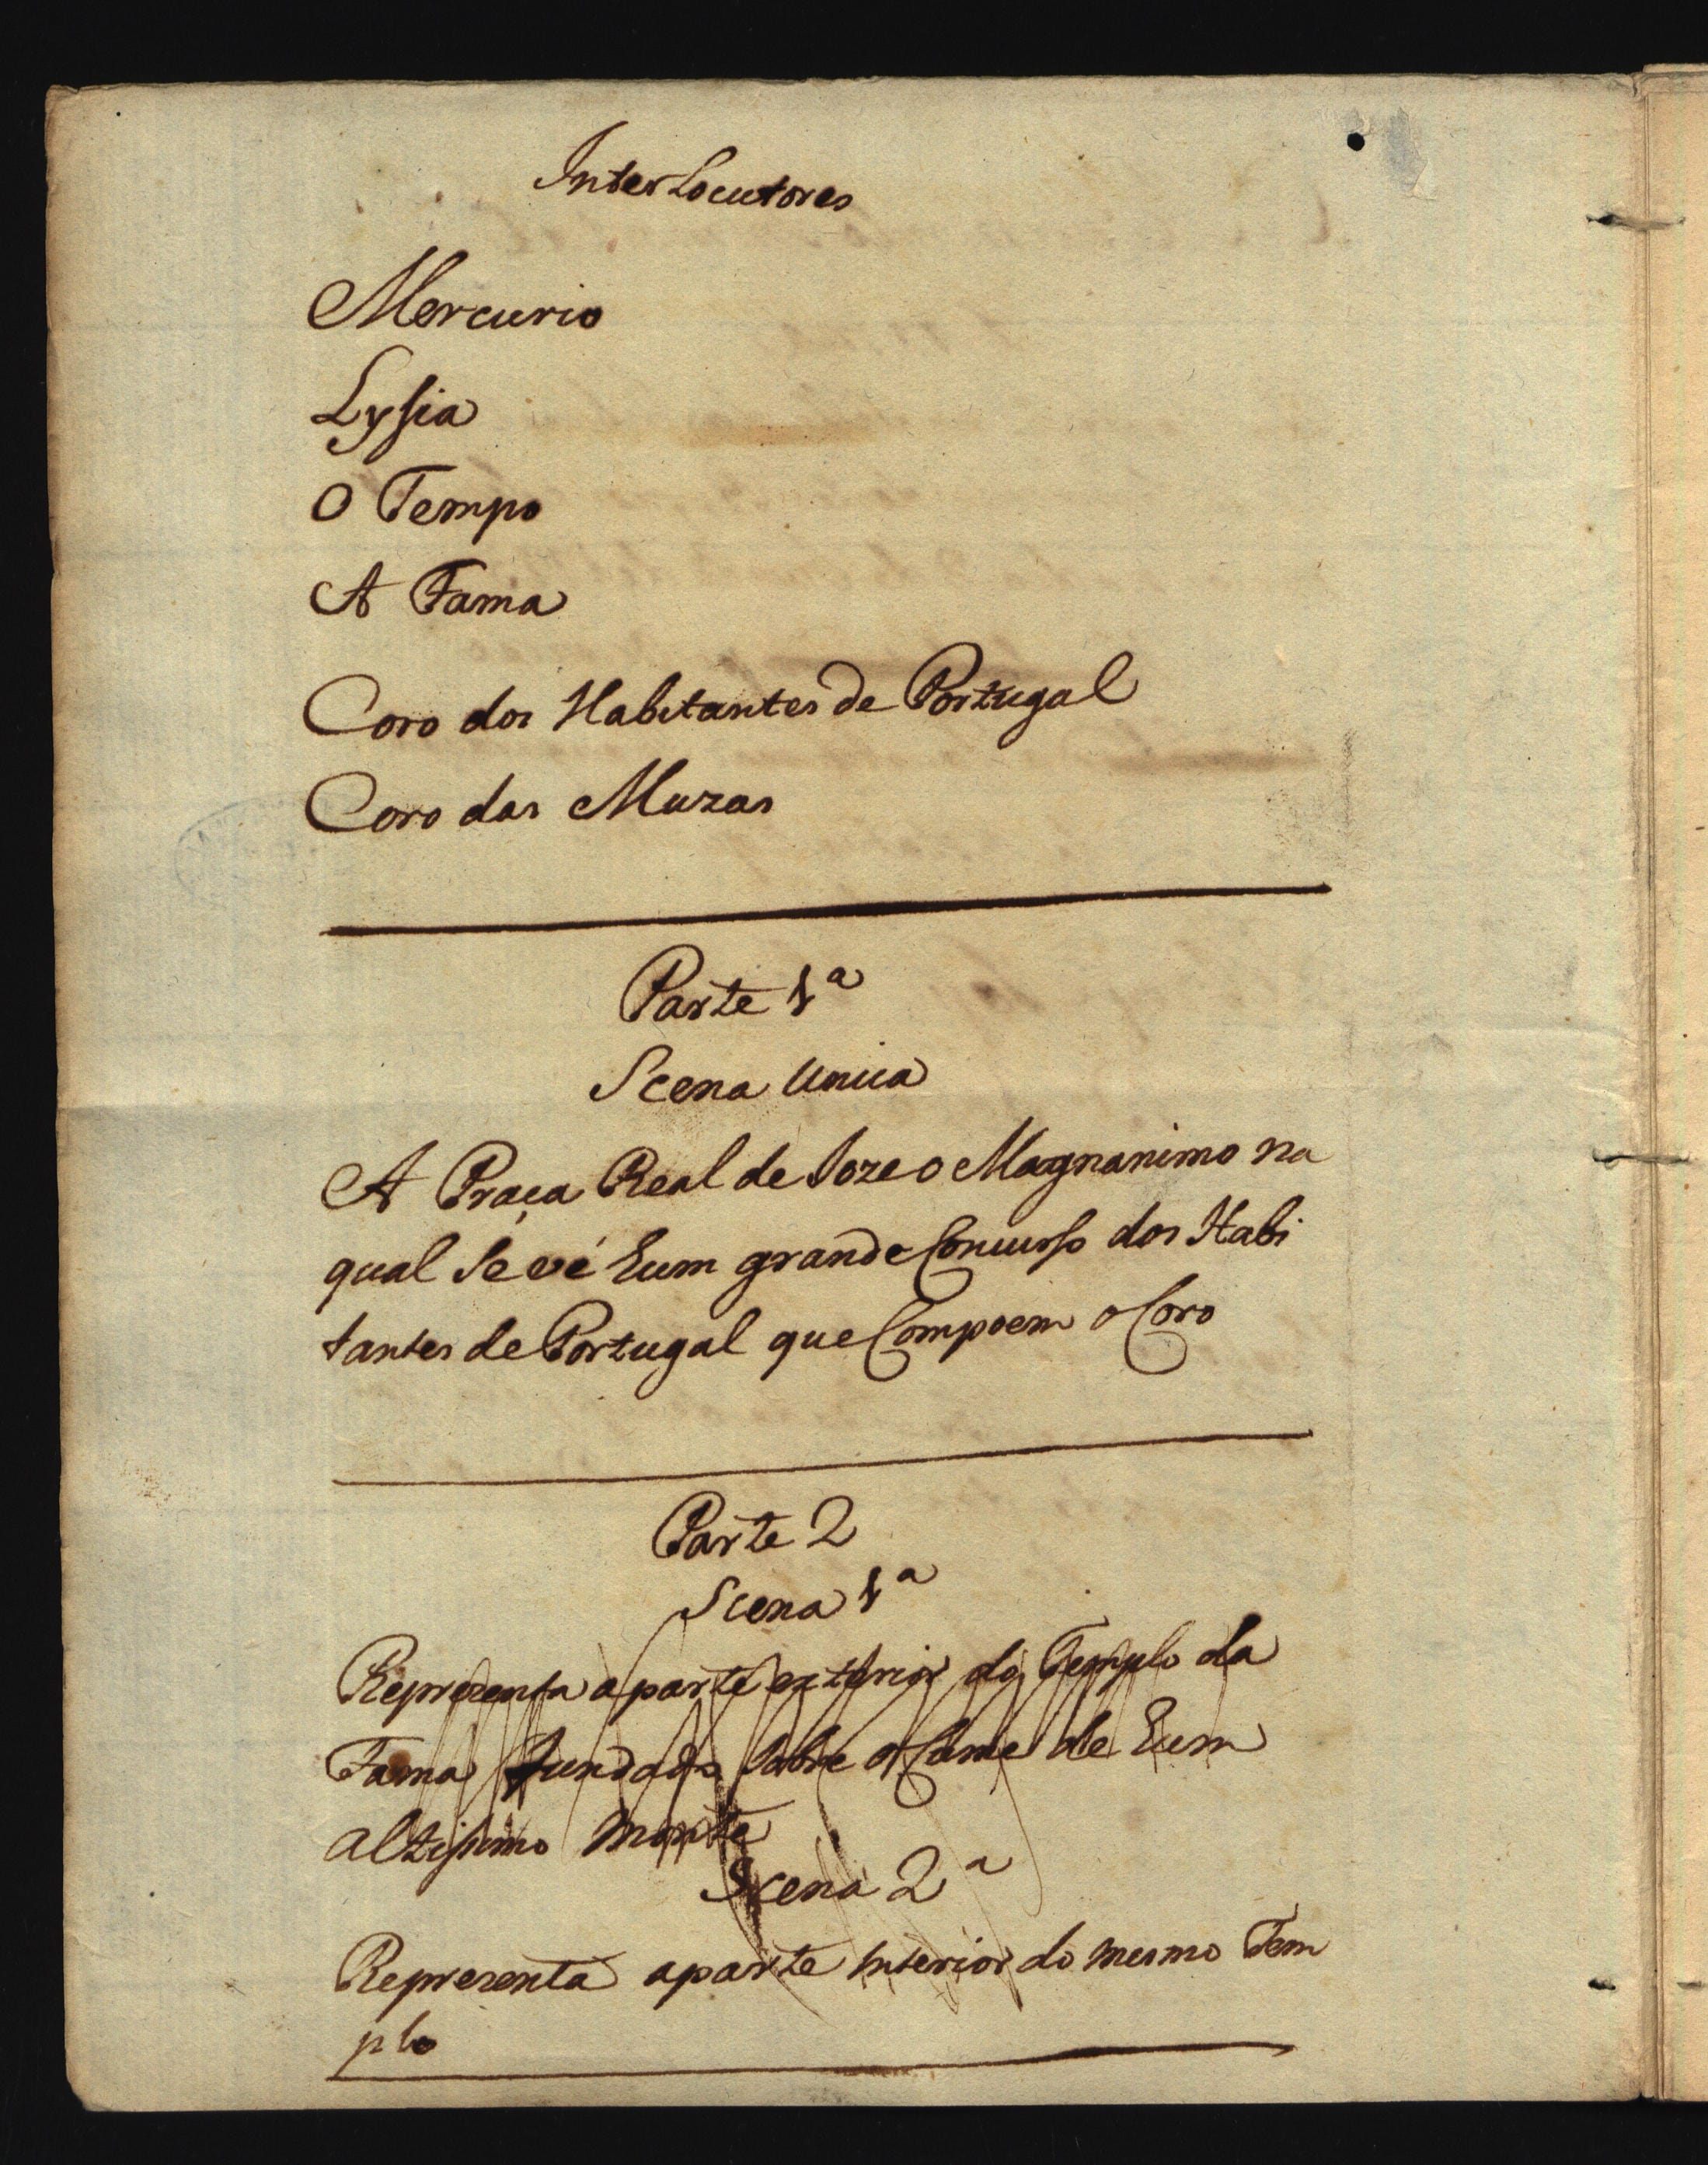 InterLocutores
Mercurio
Lysia
O Tempo
A Fama
Coro dos Habitantes de Portugal
Coro das Muzas
Parte 1ª
Scena Unica
A Praça Real de Joze o Magnanimo na
qual Se vé hum grande Concurso dos Habi
tantes de Portugal que Compoem o Coro
Parte 2
Scena 1ª
Reprezenta a parte exterior do Templo da
Fama fundado Sobre o Cume de hum
altissimo Monte
Scena 2ª
Reprezenta a parte interior do mesmo Tem
plo